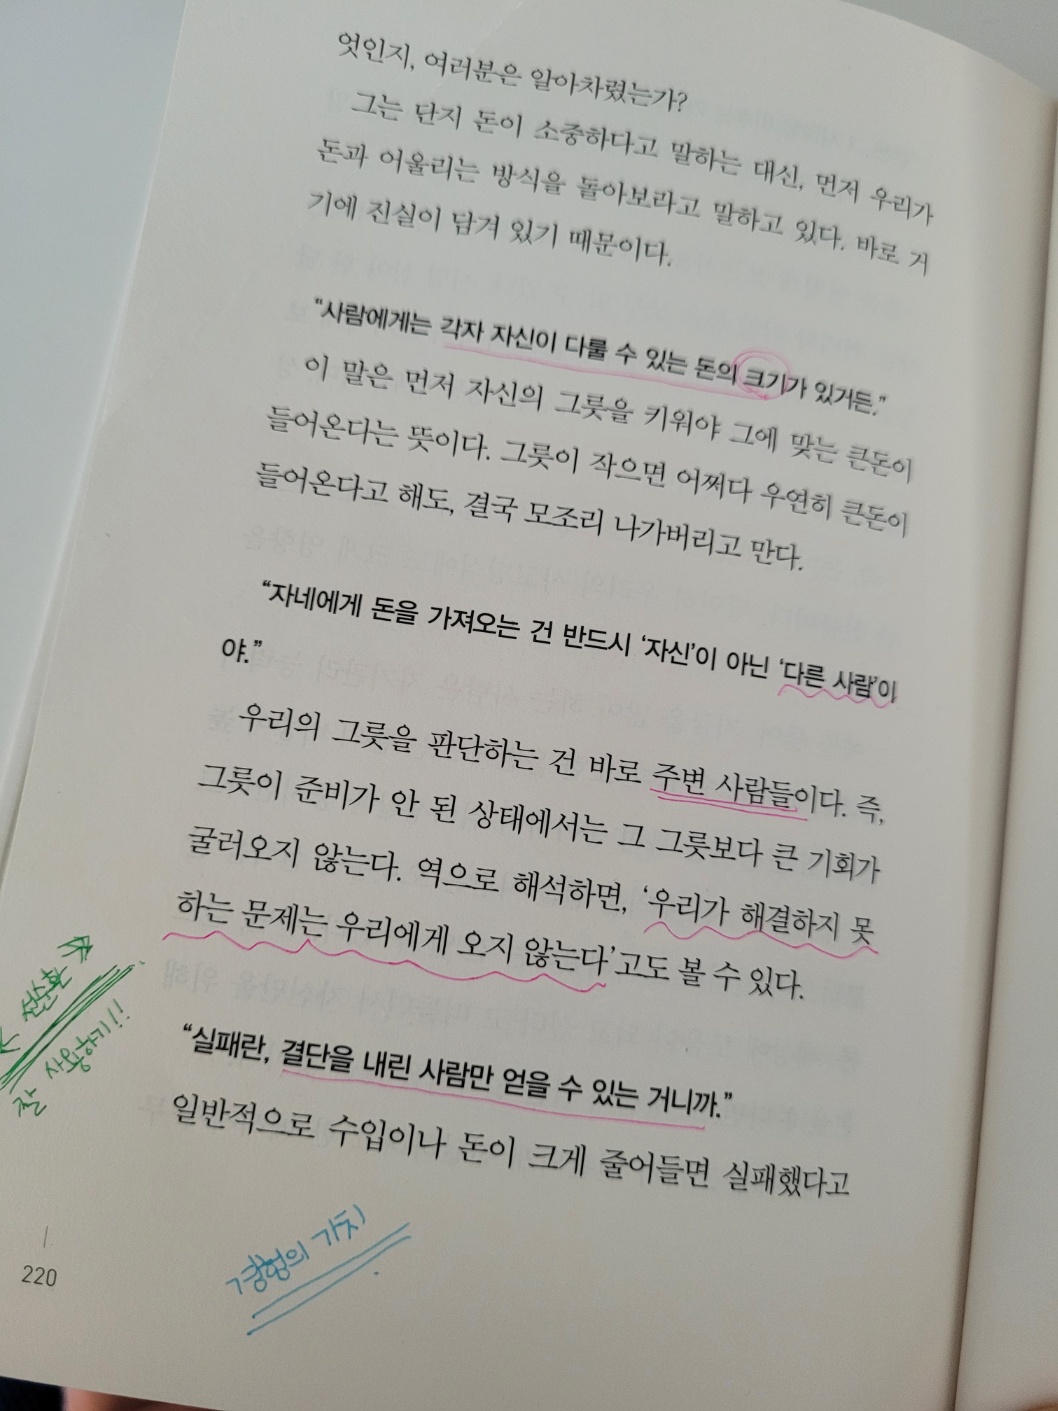 엇인지, 여러분은 알아차렸는가?
그는 단지 돈이 소중하다고 말하는 대신, 먼저 우리가
돈과 어울리는 방식을 돌아보라고 말하고 있다. 바로 거
기에 진실이 담겨 있기 때문이다.
“사람에게는 각자 자신이 다룰 수 있는 돈의 크기가 있거든.”
이 말은 먼저 자신의 그릇을 키워야 그에 맞는 큰돈이
들어온다는 뜻이다. 그릇이 작으면 어쩌다 우연히 큰돈이
들어온다고 해도, 결국 모조리 나가버리고 만다.
“자네에게 돈을 가져오는 건 반드시 ‘자신’이 아닌 ‘다른 사람’이
야.”
우리의 그릇을 판단하는 건 바로 주변 사람들이다. 즉,
그릇이 준비가 안 된 상태에서는 그 그릇보다 큰 기회가
굴러오지 않는다. 역으로 해석하면, ‘우리가 해결하지 못
하는 문제는 우리에게 오지 않는다’고도 볼 수 있다.
선순환
잘 사용하기!!
“실패란, 결단을 내린 사람만 얻을 수 있는 거니까.”
일반적으로 수입이나 돈이 크게 줄어들면 실패했다고
경험의 가치
220